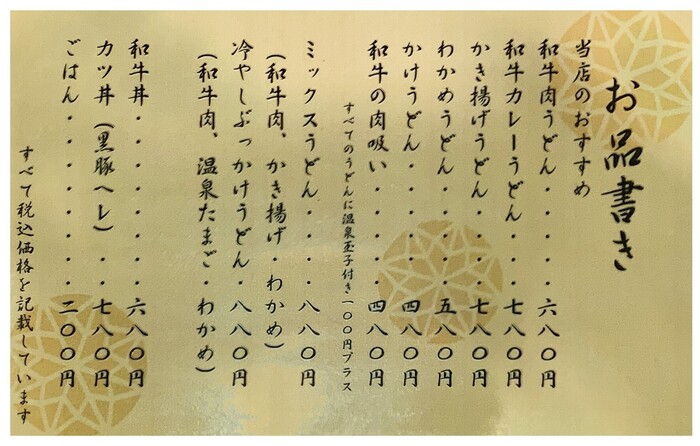 お品書き
当店のおすすめ
和牛肉うどん・・・・六八〇円
和牛カレーうどん・・・七八〇円
かき揚げうどん・・・・七八〇円
わかめうどん・・・・・五八〇円
かけうどん・・・・・・四八〇円
和牛の肉吸い・・・・・四八〇円
すべてのうどんに温泉玉子付き一〇〇円プラス
ミックスうどん・・・・八八〇円
(和牛肉、かき揚げ・わかめ)
冷やしぶっかけうどん・八八〇円
(和牛肉、温泉たまご・わかめ)
和牛丼・・・・・・・・六八〇円
カツ丼(黒豚ヘレ)・・七八〇円
ごはん・・・・・・・・二〇〇円
すべて税込価格を記載しています